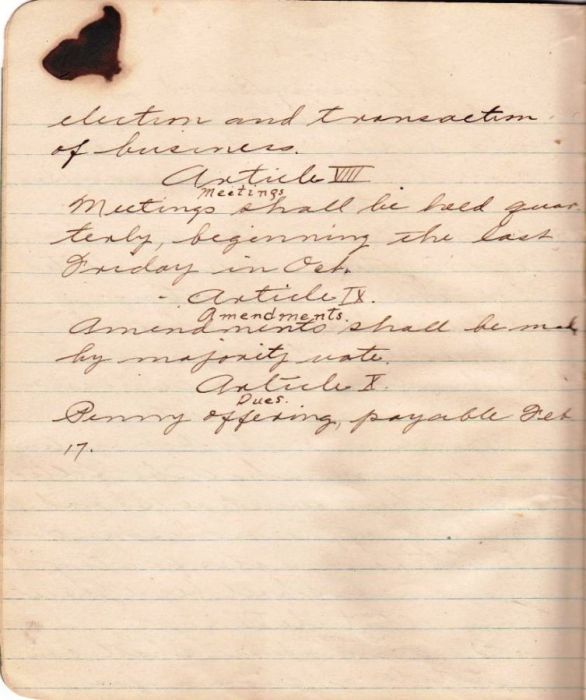 election and transaction
of business.
Article VIII
Meetings
Meetings shall be held quar
terly, beginning the last
Friday in Oct.
Article IX.
Amendments.
Amendments shall be made
by majority vote.
Article X.
Dues.
Penny offering, payable Feb
17.